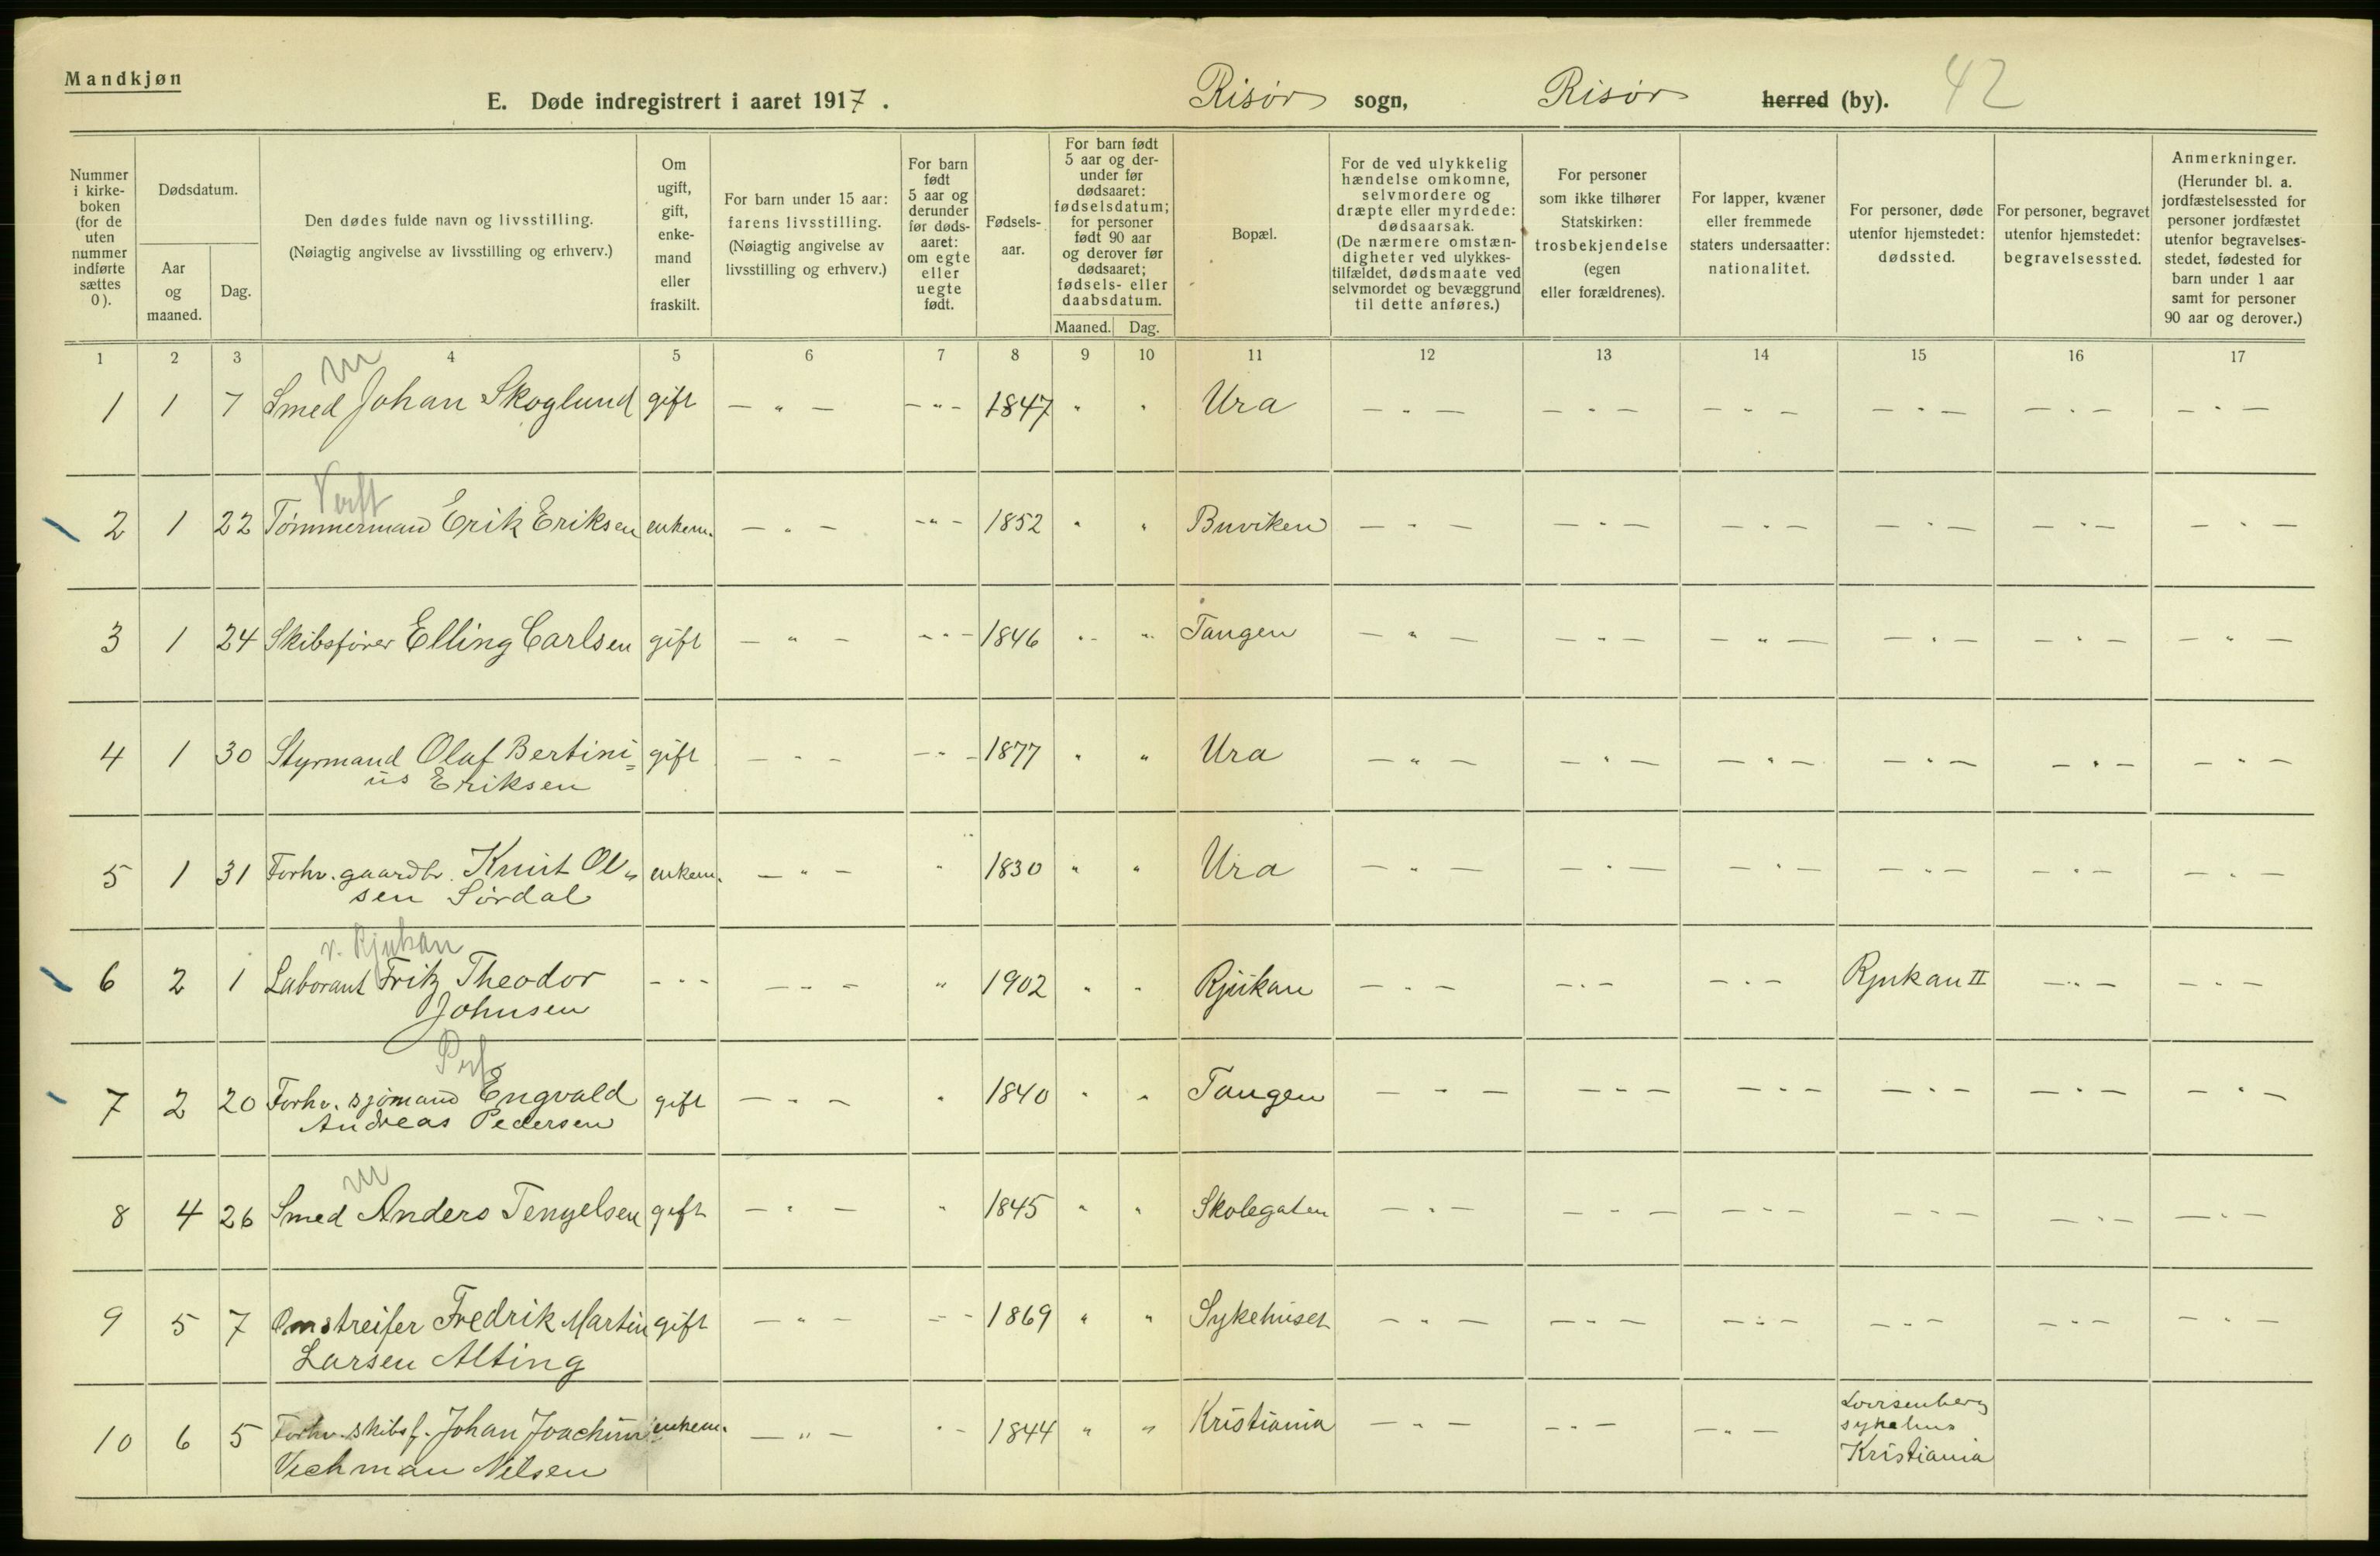 Mandkjøn
E. Døde indregistrert i aaret 1917. Risør sogn, Risør herred (by). 42
Nummer i kirkeboken (for de uten nummer indførte sættes 0).
Dødsdatum.
Aar og maaned.
Dag.
Den dødes fulde navn og livsstilling.
(Nøiagtig angivelse av livsstilling og erhverv.)
Om ugift, gift, enkemand eller fraskilt.
For barn under 15 aar: farens livsstilling.
(Nøiagtig angivelse av livsstilling og erhverv.)
For barn født 5 aar og derunder før dødsaaret: om egte eller uegte født.
Fødselsaar.
For barn født 5 aar og derunder før dødsaaret: fødselsdatum; for personer født 90 aar og derover før dødsaaret; fødsels- eller daabsdatum.
Maaned. Dag.
Bopæl.
For de ved ulykkelig hændelse omkomne, selvmordere og dræpte eller myrdede: dødsaarsak.
(De nærmere omstændigheter ved ulykkestilfældet, dødsmaate ved selvmordet og bevæggrund til dette anføres.)
For personer som ikke tilhører Statskirken: trosbekjendelse (egen eller forældrenes).
For lapper, kvæner eller fremmede staters undersaatter: nationalitet.
For personer, døde utenfor hjemstedet: dødssted.
For personer, begravet utenfor hjemstedet: begravelsessted.
Anmerkninger.
(Herunder bl. a. jordfæstelsessted for personer jordfæstet utenfor begravelsesstedet, fødested for barn under 1 aar samt for personer 90 aar og derover.)
1 2 3 4 5 6 7 8 9 10 11 12 13 14 15 16 17
m
1 1 7 Smed Johan Skoglund gift — " — — " — 1847 " " Ura — " — — " — — " — — " — — " — — " —
Verft
2 1 22 Tømmermand Erik Eriksen enkem. — " — — " — 1852 " " Buviken — " — — " — — " — — " — — " — — " —
3 1 24 Skibsfører Elling Carlsen gift — " — — " — 1846 " " Tangen — " — — " — — " — — " — — " — — " —
4 1 30 Styrmand Olaf Bertini= gift — " — — " — 1877 " " Ura — " — — " — — " — — " — — " — — " —
us Eriksen
5 1 31 Forhv. gaardbr. Knut Ol= enkem. — " — " 1830 " " Ura — " — — " — — " — — " — — " — — " —
sen Sørdal
v. Rjukan
6 2 1 Laborant Fritz Theodor — " — — " — " 1902 " " Rjukan — " — — " — — " — Rjukan II — " — — " —
Johnsen
7 2 20 Forhv. sjømand Engvald gift — " — " 1840 " " Tangen — " — — " — — " — — " — — " — — " —
Andreas Pedersen
m
8 4 26 Smed Anders Tengelsen gift — " — " 1845 " " Skolegaten — " — — " — — " — — " — — " — — " —
9 5 7 Omstreifer Fredrik Martin gift — " — — " — 1869 " " Sykehuset — " — — " — — " — — " — — " — — " —
Larsen Alting
10 6 5 Forhv. skibsf. Johan Joachim enkem. — " — " — 1844 " " Kristiania — " — — " — — " — Lovisenberg
sykehus
Vichman Nilsen Kristiania